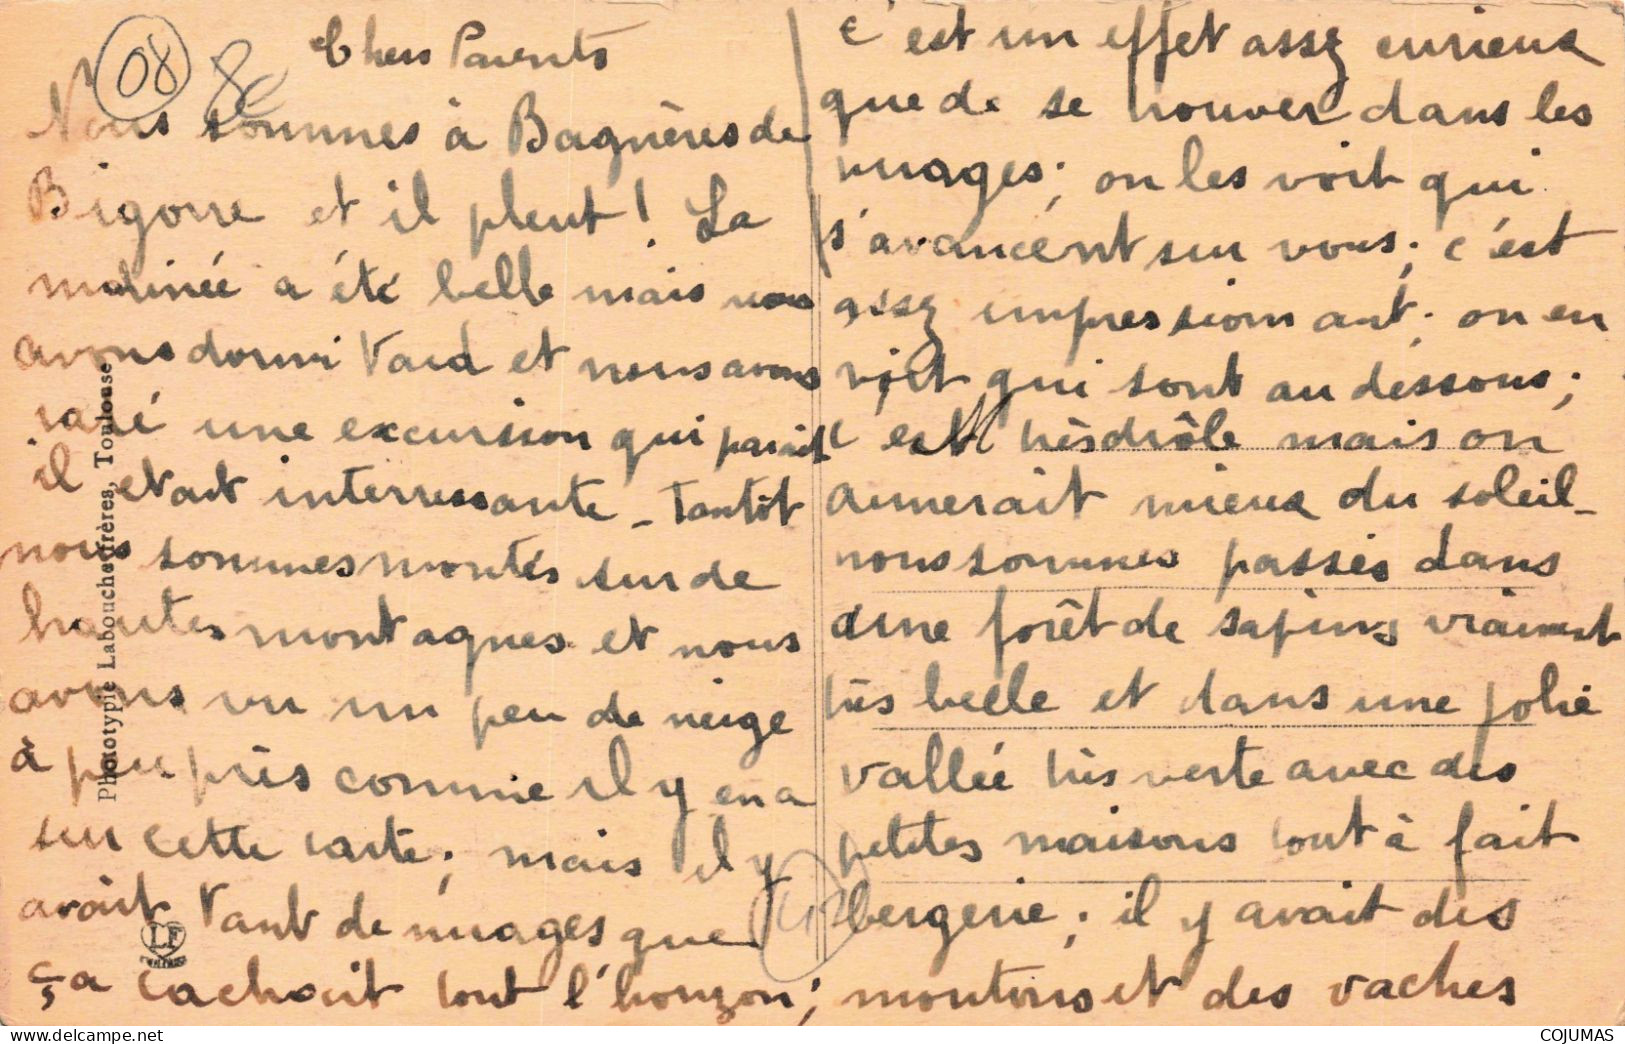 08 8
Chers Parents
Nous sommes à Bagnères de
Bigorre et il pleut! La
matinée a été belle mais nous
avons dormi tard et nous avons
raté une excursion qui parait
il etait interressante - Tantôt
nous sommes montés sur de
hautes montagnes et nous
avons vu un peu de neige
à peu près comme il y en a
sur cette carte; mais il y
avait tant de nuages que
ça cachait tout l'horizon;
c'est un effet assez curieux
que de se trouver dans les
nuages; on les voit qui
s'avancent sur vous; c'est
assez impressionnant; on en
voit qui sont au dessous;
c'est très drôle mais on
aimerait mieux du soleil -
nous sommes passés dans
une forêt de sapins vraiment
très belle et dans une jolie
vallée très verte avec des
petites maisons tout à fait
bergerie; il y avait des
moutons et des vaches
Phototypie Labouche frères, Toulouse
LF
COJUMAS